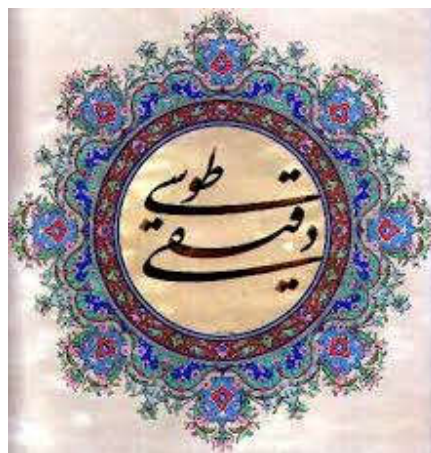 دقیقی طوسی